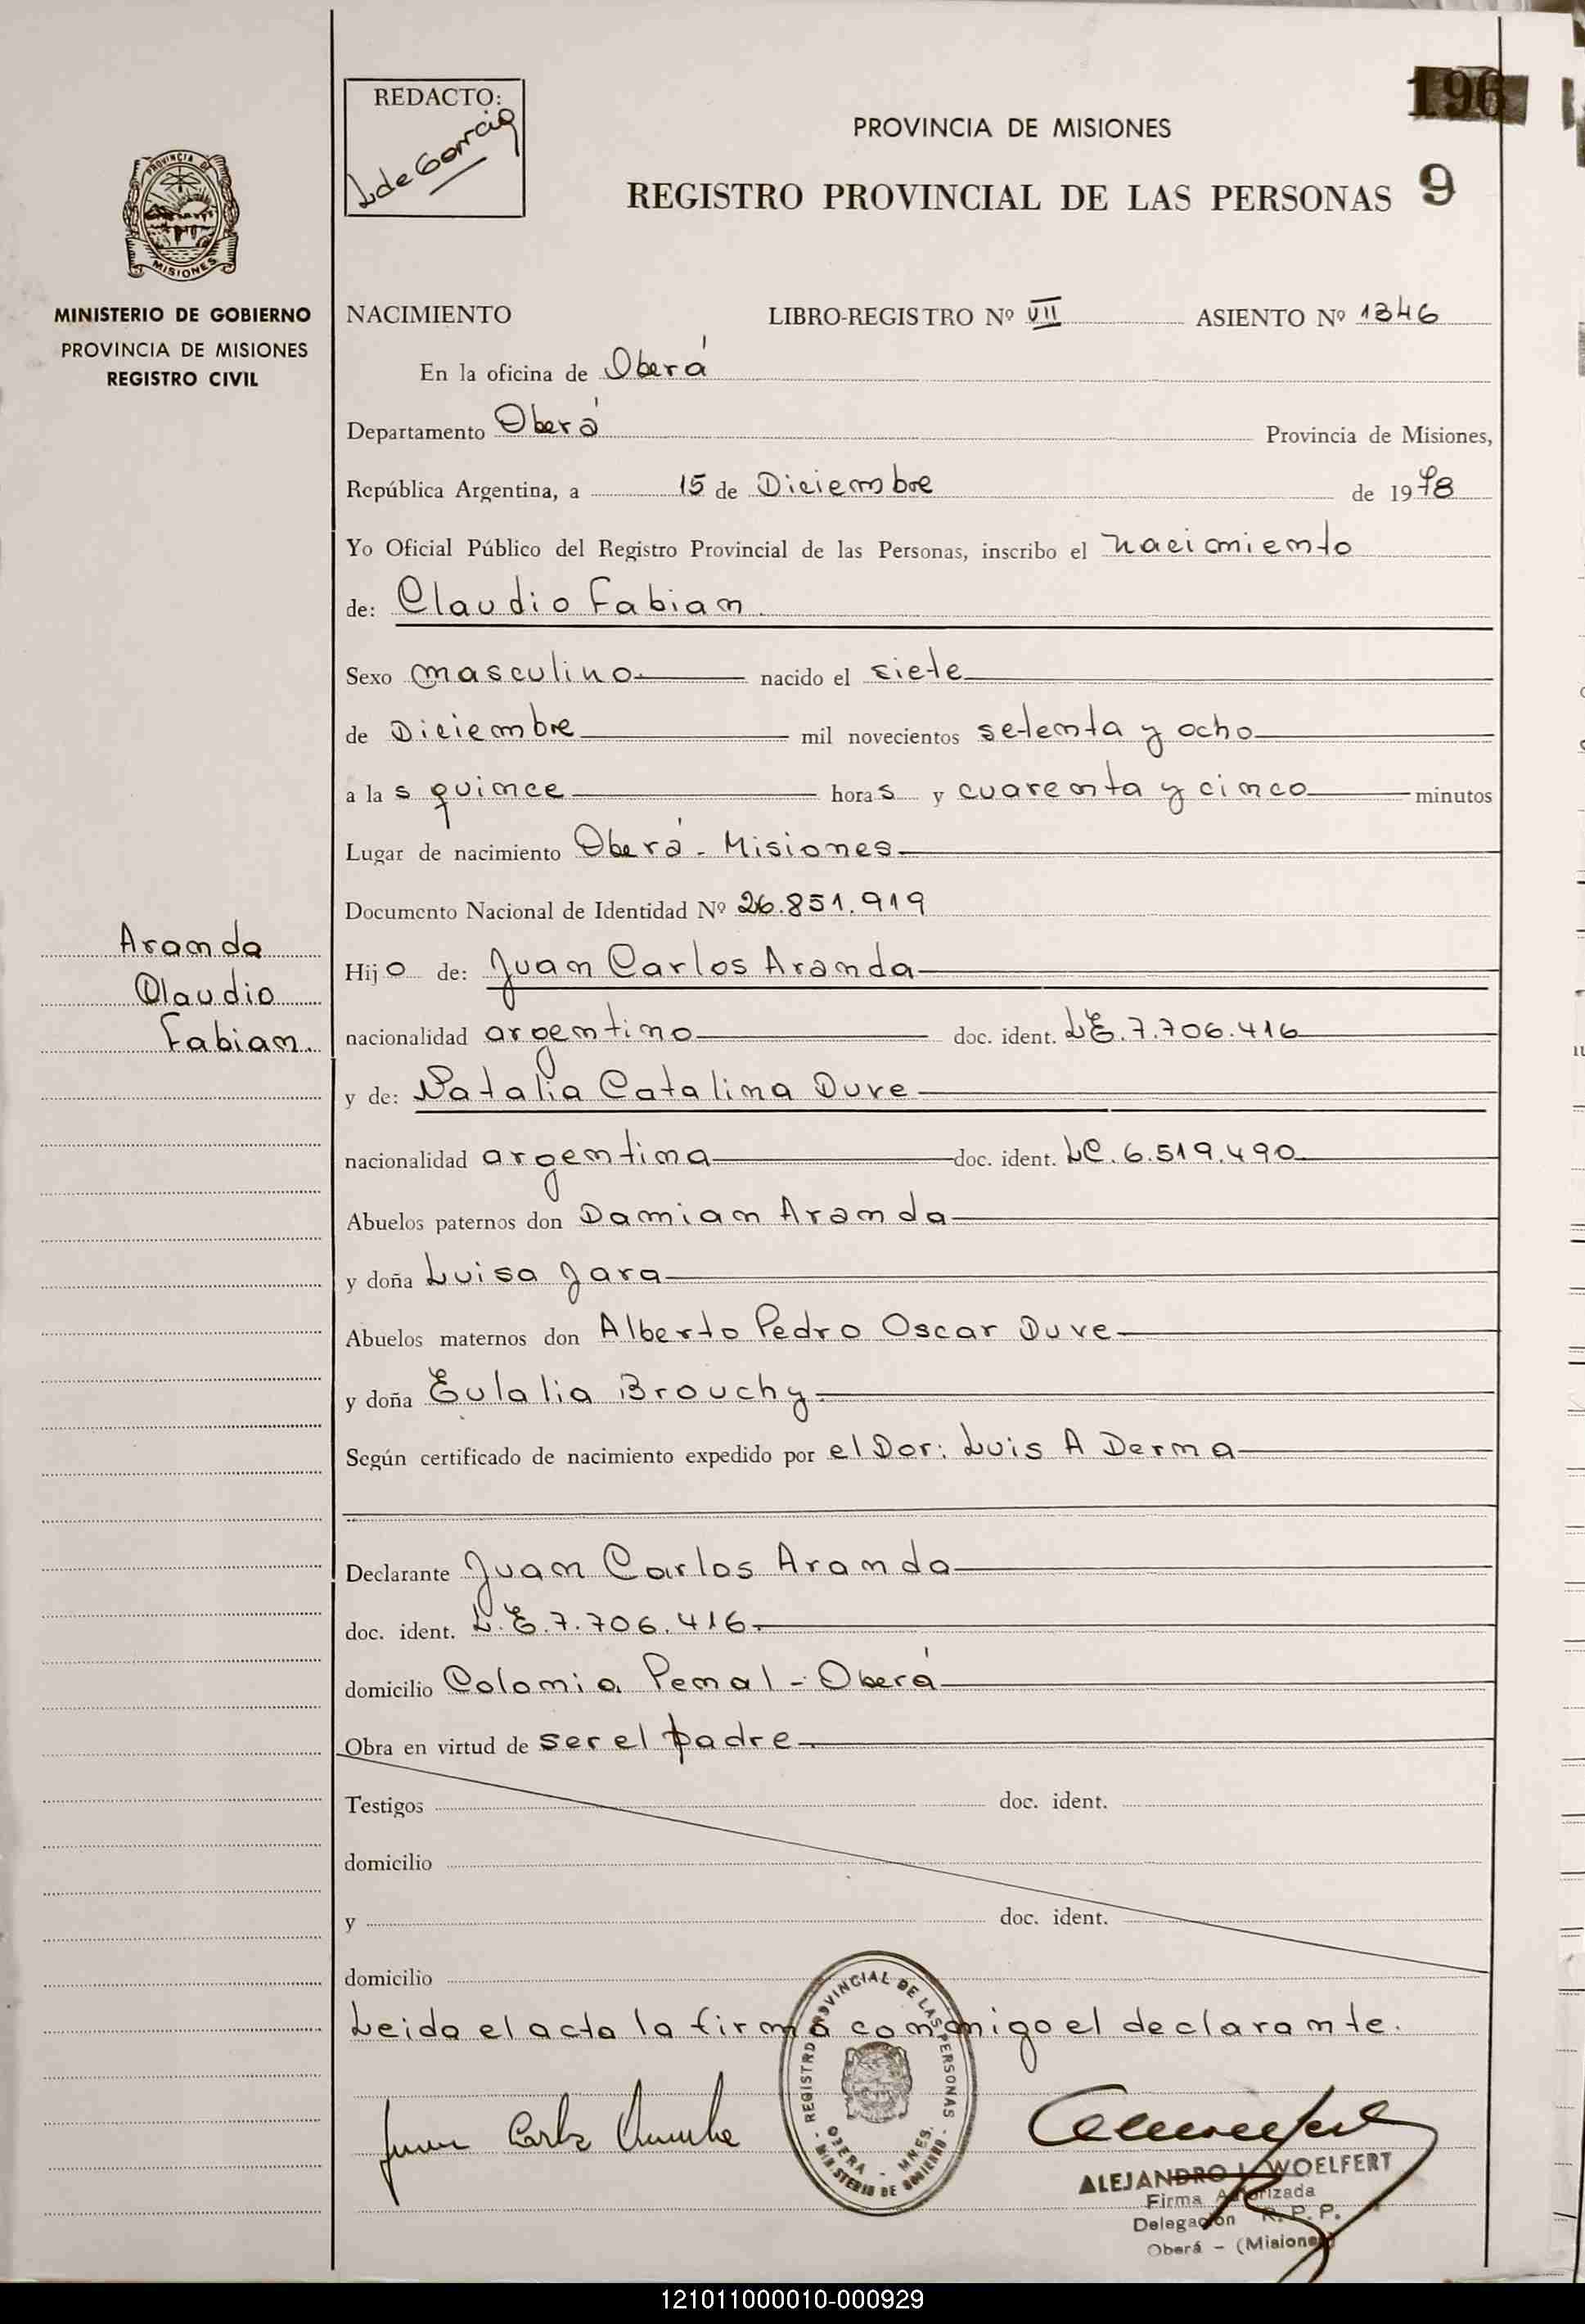 196
REDACTO:
L de Garcia
PROVINCIA DE MISIONES
REGISTRO PROVINCIAL DE LAS PERSONAS 9
PROVINCIA DE
MISIONES
MINISTERIO DE GOBIERNO
PROVINCIA DE MISIONES
REGISTRO CIVIL
NACIMIENTO LIBRO-REGISTRO Nº VII ASIENTO Nº 1346
En la oficina de Oberá
Departamento Oberá Provincia de Misiones,
República Argentina, a 15 de Diciembre de 1978
Yo Oficial Público del Registro Provincial de las Personas, inscribo el nacimiento
de: Claudio Fabian
Sexo masculino nacido el siete
de Diciembre mil novecientos setenta y ocho
a las quince horas y cuarenta y cinco minutos
Lugar de nacimiento Oberá - Misiones
Documento Nacional de Identidad Nº 26.851.919
Aranda
Claudio
Fabian.
Hijo de: Juan Carlos Aranda
nacionalidad argentino doc. ident. LE.7.706.416
y de: Natalia Catalina Duve
nacionalidad argentina doc. ident. LC.6.519.490
Abuelos paternos don Damian Aranda
y doña Luisa Jara
Abuelos maternos don Alberto Pedro Oscar Duve
y doña Eulalia Brouchy
Según certificado de nacimiento expedido por el Dor: Luis A Derma
Declarante Juan Carlos Aranda
doc. ident. L.E.7.706.416.
domicilio Colonia Penal - Oberá
Obra en virtud de ser el padre
Testigos doc. ident.
domicilio
y doc. ident.
domicilio
Leida el acta la firma conmigo el declarante.
REGISTRO PROVINCIAL DE LAS PERSONAS
OBERA - MNES.
MINISTERIO DE GOBIERNO
Juan Carlos Aranda
ALEJANDRO L. WOELFERT
Firma Autorizada
Delegación R. P. P.
Oberá - (Misiones)
121011000010-000929